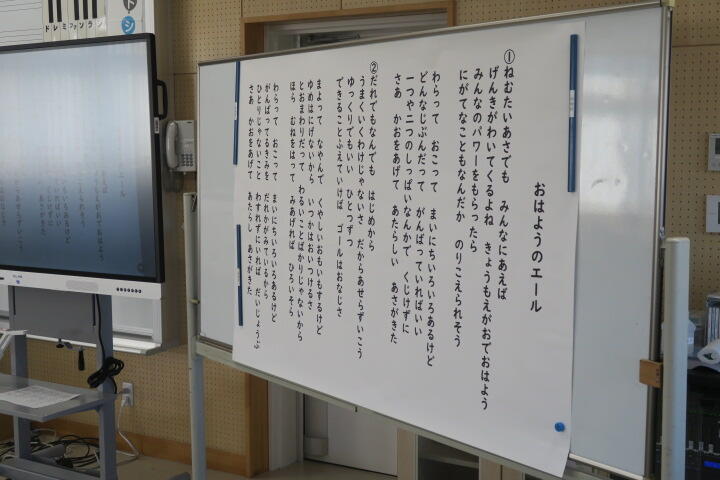 おはようのエール
①ねむたいあさでも みんなにあえば
げんきがわいてくるよね きょうもえがおでおはよう
みんなのパワーをもらったら
にがてなこともなんだか のりこえられそう
わらって おこって まいにちいろいろあるけど
どんなじぶんだって がんばっていればいい
一つや二つのしっぱいなんかで くじけずに
さあ かおをあげて あたらしい あさがきた
②だれでもなんでも はじめから
うまくいくわけじゃないさ だからあせらずいこう
ゆっくりでもいい ひとつずつ
できることふえていけば ゴールはおなじさ
まよって なやんで くやしいおもいもするけど
ゆめはにげないから いつかはおいつけるさ
とおまわりだって わるいことばかりじゃないから
ほら むねをはって みあげれば ひろいそら
わらって おこって まいにちいろいろあるけど
がんばってるきみを だれかがみているから
ひとりじゃないこと わすれずにいれば だいじょうぶ
さあ かおをあげて あたらし あさがきた
ドレミファソラシ
ド
シ
おはようのエール